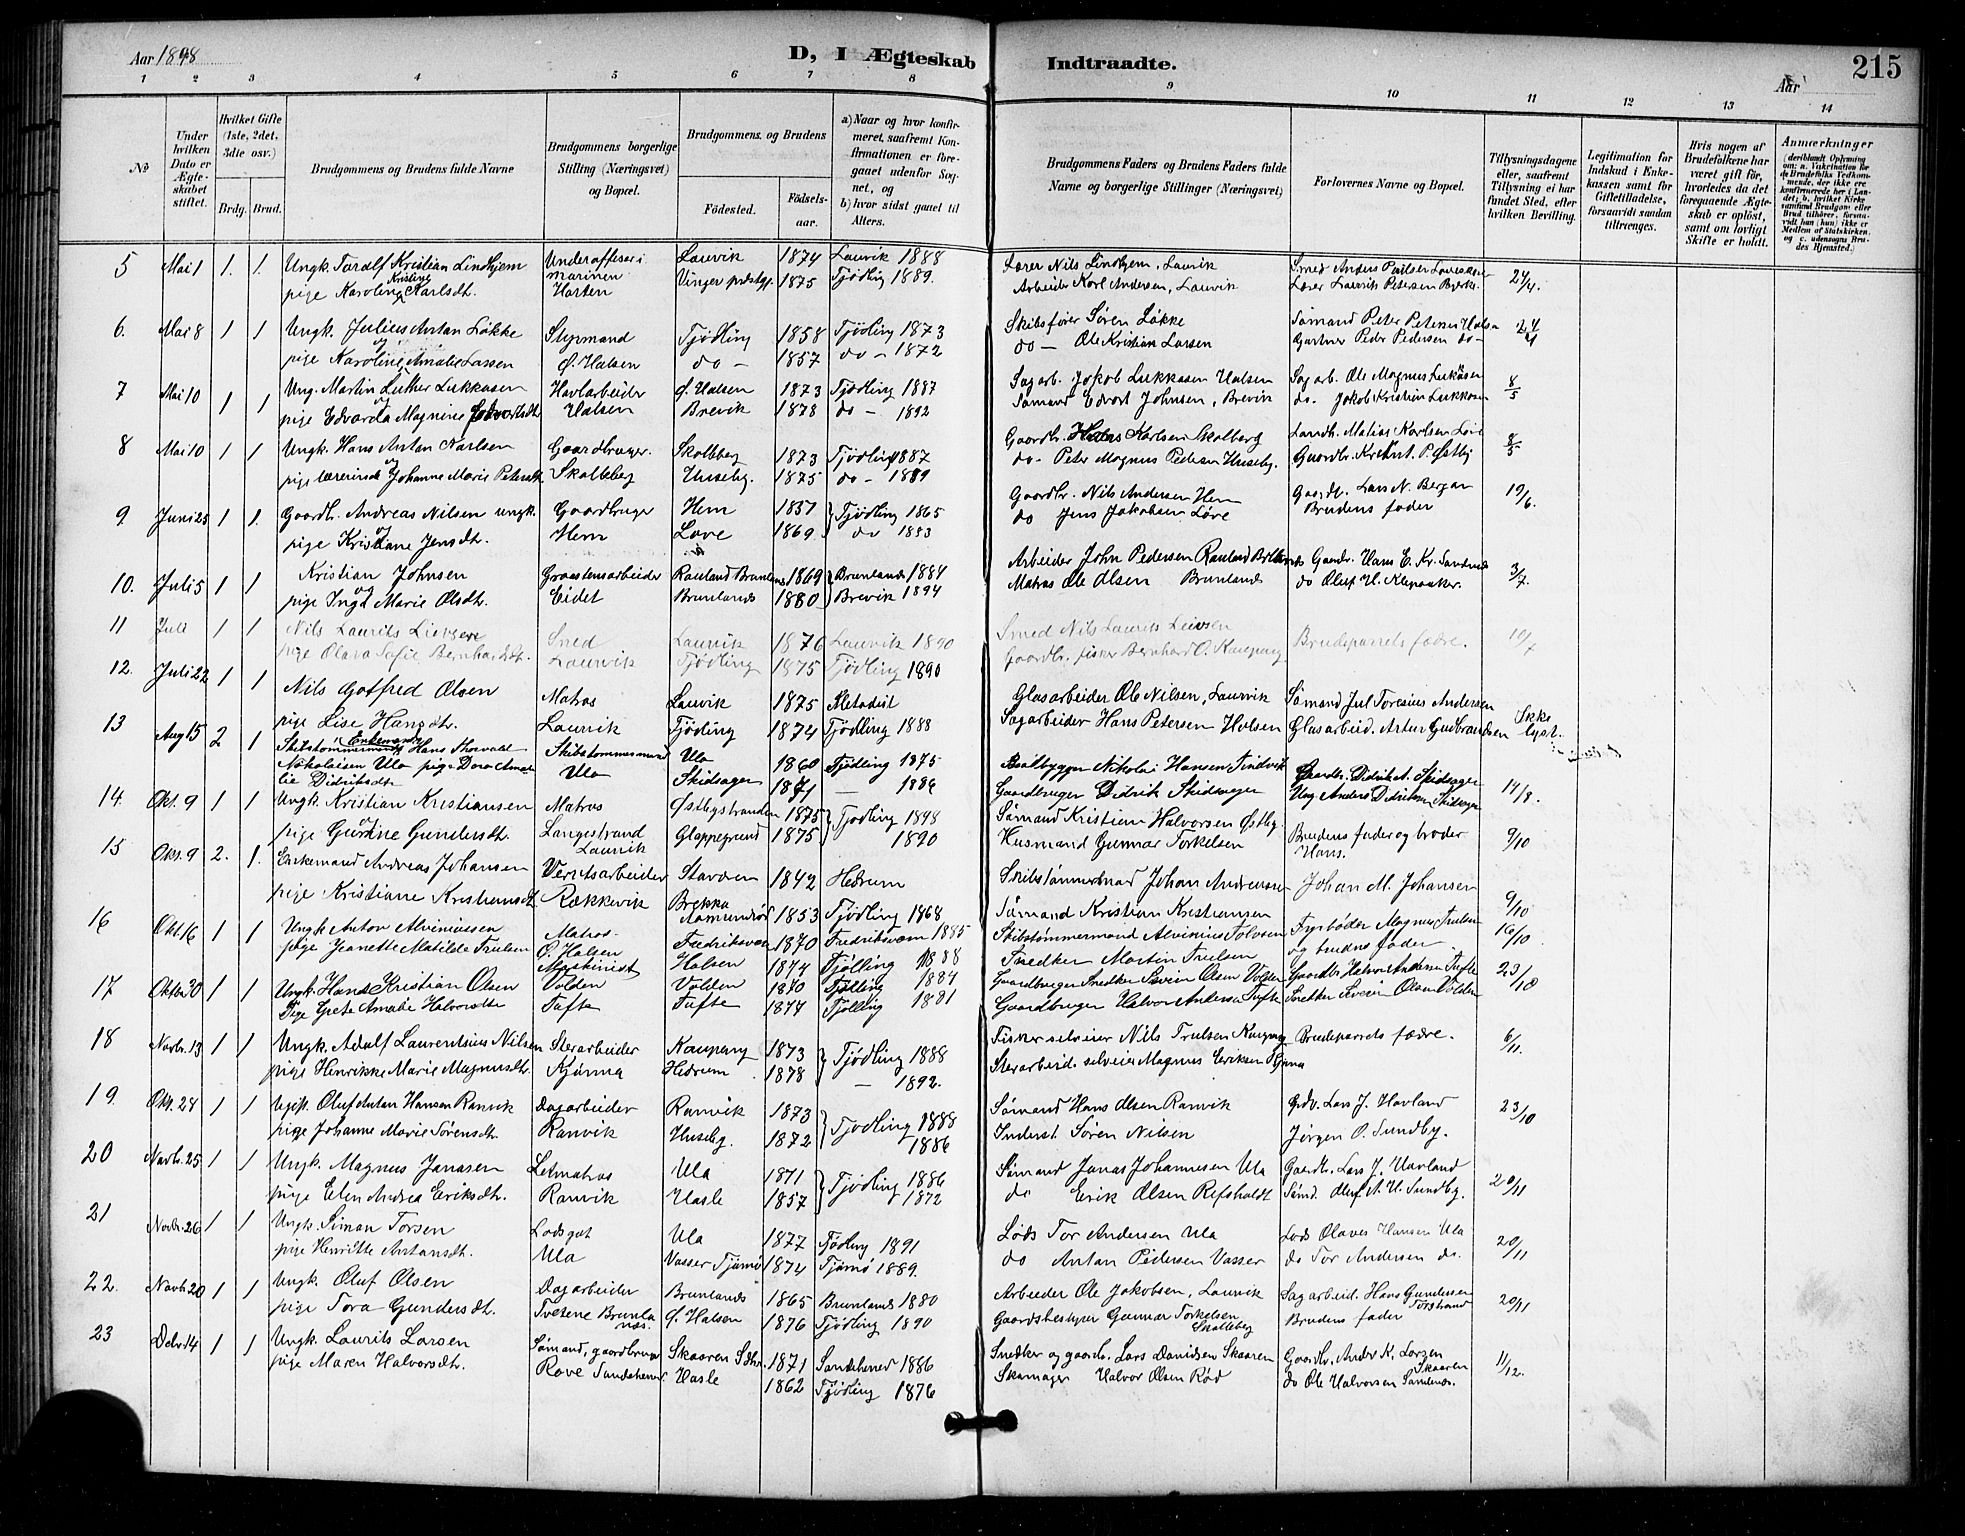 Aar 1898
D, I Ægteskab Indtraadte.
Aar
215
1 2 3 4 5 6 7 8 9 10 11 12 13 14
№
Under hvilken Dato er Ægteskabet stiftet.
Hvilket Gifte (1ste, 2det, 3die osv.)
Brdg. Brud.
Brudgommens og Brudens fulde Navne
Brudgommens borgerlige Stilling (Næringsvei) og Bopæl.
Brudgommens og Brudens
Fødested. Fødselsaar.
a) Naar og hvor konfirmeret, saafremt Konfirmationen er foregaaet udenfor Sognet, og
b) hvor sidst gaaet til Alters.
Brudgommens Faders og Brudens Faders fulde Navne og borgerlige Stillinger (Næringsvei)
Forlovernes Navne og Bopæl.
Tillysningsdagene eller, saafremt Tillysning ei har fundet Sted, efter hvilken Bevilling.
Legitimation for Indskud i Enkekassen samt for Giftetilladelse, forsaavidt saadan tiltrænges.
Hvis nogen af Brudefolkene har været gift før, hvorledes da det foregaaende Ægteskab er opløst, samt om lovligt Skifte er holdt.
Anmærkninger
5 Mai 1 1. 1. Ungk. Taralf Kristian Lindhjem Underofficer i Laurvik 1874 Laurvik 1888 Lærer Nils Lindhjem, Laurvik Smed Anders Paulsen 24/4.
pige Karoline Kristine Karlsdt. marinen Horten Vinger prdstgj. 1875 Tjødling 1889. Arbeider Karl Andersen, Laurvik Lærer Laurits Petersen Bjerke.
6. Mai 8 1 1 Ungk. Julius Antan Løkke Styrmand Tjødling 1858 Tjødling 1873 Skibsfører Søren Løkke Sømand Peter Petersen Halsen 24/4
og pige Karoline Amalie Lassen Ø. Halsen do - 1857 do - 1872 do - Ole Kristian Larsen Gartner Peder Pedersen do -
7 Mai 10 1 1 Ung. Martin Luther Lukkasen Havlarbeider Ø. Halsen 1873 Tjødling 1887 Sagarb. Jakob Lukkasen Halsen Sagarb. Ole Magnus Lukasen 8/5
og pige Edvarda Magnine Edvardsdt. Halsen Brevik 1878 do - 1892 Sømand Edvart Johnsen, Brevik do. Jakob Kristian Lukkasen
8 Mai 10 1 1 Ungk. Hans Antan Karlsen Gaardbruger Skalleberg 1873 Tjødling 1887 Gaardbr. Hans Karlsen Skalberg Landh. Matias Karlsen Løve 8/5
og pige lærerinde Johanne Marie Petersdt. Skalleberg Huseby. 1875 do - 1889 do - Peter Magnus Pedersen Huseby. Gaardbr. Kristnt. P. Østby
9. Juni 25 1 1. Gaardbr. Andreas Nilsen ungk. Gaardbruger Hem 1837 Tjødling 1865 Gaardbr. Nils Andersen Hem Gaardb. Lars N. Bergan 19/6.
og pige Kristiane Jensdt. Hem Love 1869. do 1883 do Jens Jakobsen Løve Brudens fader
10. Juli 5 1 1 Kristian Johnsen Graastensarbeider Rauland Brunlanes 1869 Brunlanes 1884 Arbeider John Pedersen Rauland Brunlands Gaardbr. Hans E. Kr. Sandnæs 3/7.
og pige Inga Marie Olsdt. Eidet Brunlands 1880 Brevik 1894 Matros Ole Olsen Brunlands do Oluf H. Klepaaker.
11 Juli 1 1 Nils Laurits Lievsen Smed Laurvik 1876 Laurvik 1890 Smed Nils Laurits Leivsen Brudeparrets fædre. 10/7
pige Olava Sofie Bernhardsdt. Laurvik Tjødling 1875 Tjødling 1890 Gaardbr. fisker Bernhard O. Kaupang
12. Juli 22 1 1 Nils Gotfred Olsen Matros Laurvik 1875 Metodist Glasarbeider Ole Nilsen, Laurvik Sømand Jul Toresius Andersen Ikke lyst.
pige Lise Hansdt. Laurvik Tjødling 1874 Tjødling 1888 Sagarbeider Hans Petersen Halsen Glasarbeid. Artur Gudbrandsen
13 Aug 15 2 1 Enkemand Skibstømmermand Hans Thorvald Skibstømmermand Ula 1860 Tjødling 1875 Baatbygger Nikolai Hansen Tindvik Gaardbr. Didrik A. Skidsager 14/8.
Nikolaisen Ula pige Dora Amalie Didriksdt. Ula Skidsager 1871 — 1886 Gaardbruger Didrik Skidsager Ung. Anders Didriksen Skidsager
14. Okt. 9 1 1 Ungk. Kristian Kristiansen Matros Østbystranden 1875 Tjødling 1898 Sømand Kristian Halvorsen Østby. Brudens fader og broder Hans. 9/10
pige Gurine Gundersdt. Langestrand Laurvik Gloppegrund 1875 1890 Husmand Gunnar Torkelsen
15 Okt. 9 2. 1. Enkemand Andreas Johansen Verftsarbeider Staværn 1842 Hedrum Skibstømmermand Johan Andreassen Johan M. Johansen 9/10
pige Kristiane Kristiansdt. Rækkevik Brekke Aamundrød 1853 Tjødling 1868 Sømand Kristian Kristiansen
16 Okt. 16 1 1 Ungk. Anton Alviniussen Matros Fredriksværn 1870 Fredriksværn 1885 Skibstømmermand Alvinius Tolvsen Fyrbøder Magnus Trulsen 16/10
pige Jeanette Matilde Trulsen Ø. Halsen Halsen 1874 Tjølling 1888 Snedker Martin Trulsen og brudens fader
17 Oktbr 30 1 1 Ungk. Hans Kristian Olsen Maskinist Volden Volden 1870 Tjølling 1884 Gaardbruger Snedker Severin Olsen Volden Gaardbr Halvor Andersen Tufte 23/10
Pige Grete Amalie Halvorsdt Tufte Tufte 1874 Tjølling 1881 Gaardbruger Halvor Andersen Tufte Snedker Severin Olsen Volden
18 Novbr. 13 1 1 Ungk. Adolf Laurentsius Nilsen Stenarbeider Kaupang 1873 Tjødling 1888 Fisker selveier Nils Trulsen Kaupang Brudeparrets fædre. 6/11.
pige Henrikke Marie Magnusdt. Kjønna Hedrum 1878 — 1892. Stenarbeid. selveier Magnus Eriksen Kjønna
19. Okt. 28 1 1 Ugift. Oluf Antan Hansen Ranvik Dagarbeider Ranvik 1873 Tjødling 1888 Sømand Hans Olsen Ranvik Grdbr. Lars J. Havland 23/10
pige Johanne Marie Sørensdt. Ranvik Huseby. 1872 1886 Inderst Søren Nilsen Jørgen O. Sundby.
20 Novbr. 25 1 1 Ungk. Magnus Janasen Letmatros Ula 1871 Tjødling 1886 Sømand Janas Johannesen Ula Gaardbr. Lars J. Havland 20/11
pige Elen Andrea Eriksdt. Ranvik Hasle 1857 1872 do Erik Olsen Refsholdt Sømd. Oluf A. H. Sundby.
21 Novbr. 26 1 1 Ungk. Siman Torsen Lodsgut Ula 1877 Tjødling 1891 Lods Tor Andersen Ula Lods Olaves Hansen Ula 20/11
pige Henriette Antansdt. Ula Vasser Tjømø 1874 Tjømø 1889. do Antan Pedersen Vasser do Tor Andersen do.
22. Novbr 20 1 1 Ungk. Oluf Olsen Dagarbeider Brunlands 1865 Brunlands 1880 Arbeider Ole Jakobsen, Laurvik Sagarbeid. Hans Gundersen Torstrand 20/11
pige Tora Gundersdt. Tvetene Brunlanæs. Ø. Halsen 1876 Tjødling 1890 Gaardsbestyrer Gunnar Torkelsen Skalleberg Brudens fader
23 Debr. 14 1 1 Ungk. Laurits Larsen Sømand, gaardbruger Skaaren Sdhr. 1871 Sandeherred 1886 Snedker og gaardb. Lars Davidsen Skaaren Gaardbr. Andr K. Larsen Skaaren 11/12.
pige Maren Halvorsdt. Rove Sandeherred Hasle 1862 Tjødling 1876 Skomager Halvor Olsen Rød do Ole Halvorsen Sandnæs.